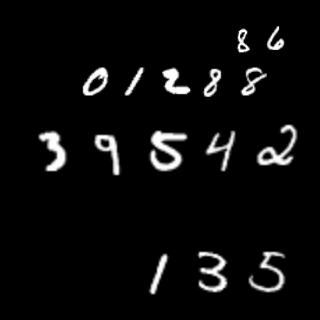 86
01288
39542
135